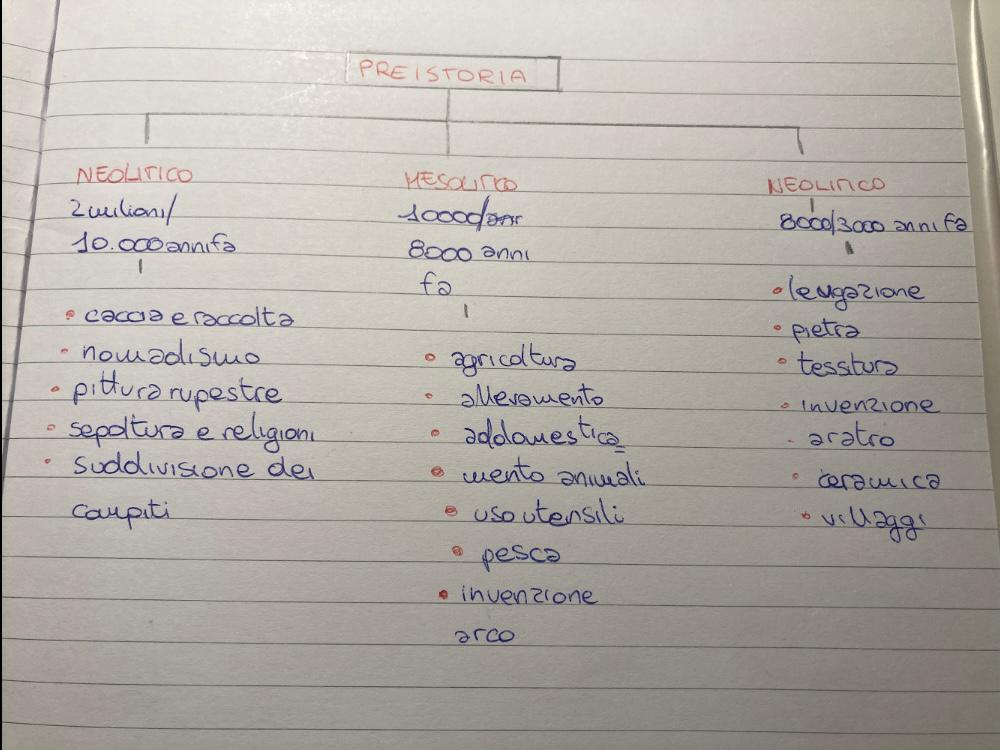 PREISTORIA
NEOLITICO
2 milioni/
10.000 anni fa
• caccia e raccolta
• nomadismo
• pittura rupestre
• sepoltura e religioni
• suddivisione dei
compiti
MESOLITICO
10000/anni
8000 anni
fa
• agricoltura
• allevamento
• addomestica=
• mento animali
• uso utensili
• pesca
• invenzione
arco
NEOLITICO
8000/3000 anni fa
• levigazione
• pietra
• tessitura
• invenzione
• aratro
• ceramica
• villaggi